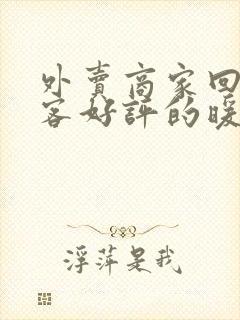 外賣商家回
客好評的暖
浮萍是我